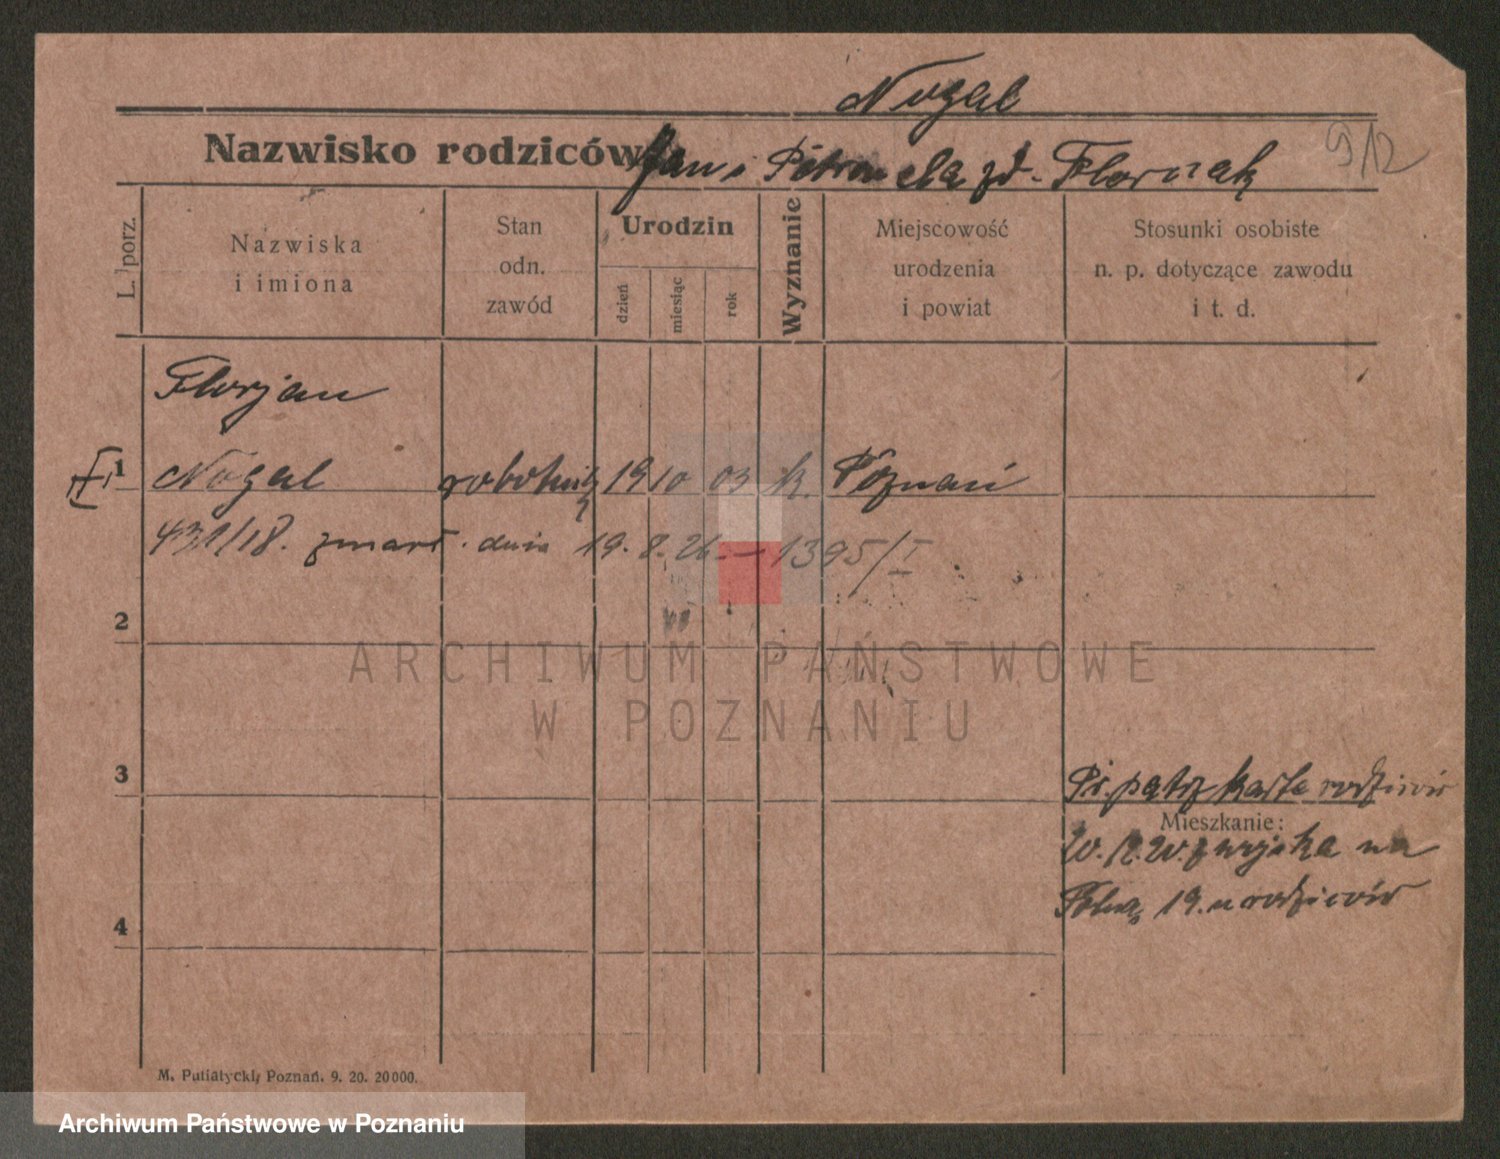 Nogal
Nazwisko rodziców Jan i Petronela zd. Florczak
912
L. porz.
Nazwiska
i imiona
Stan
odn.
zawód
Urodzin
dzień
miesiąc
rok
Wyznanie
Miejscowość
urodzenia
i powiat
Stosunki osobiste
n. p. dotyczące zawodu
i t. d.
Florjan
1 Nogal robotnik 19 10 03 k. Poznań
431/18. zmarł. dnia 19. 8. 26. – 1395/I
2
ARCHIWUM PAŃSTWOWE
W POZNANIU
3
Pr. patrz karta rodziców
Mieszkanie:
na
19. u rodziców
4
M. Putiatycki, Poznań. 9. 20. 20000.
Archiwum Państwowe w Poznaniu